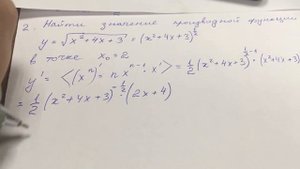 2. Найти значение производной функции
y = √(x² + 4x + 3) = (x² + 4x + 3)^(1/2)
в точке x₀ = 2
y' = ⟨(xⁿ)' = n xⁿ⁻¹ · x'⟩ = 1/2 (x² + 4x + 3)^(1/2 - 1) · (x² + 4x + 3)'
= 1/2 (x² + 4x + 3)^(-1/2) · (2x + 4)